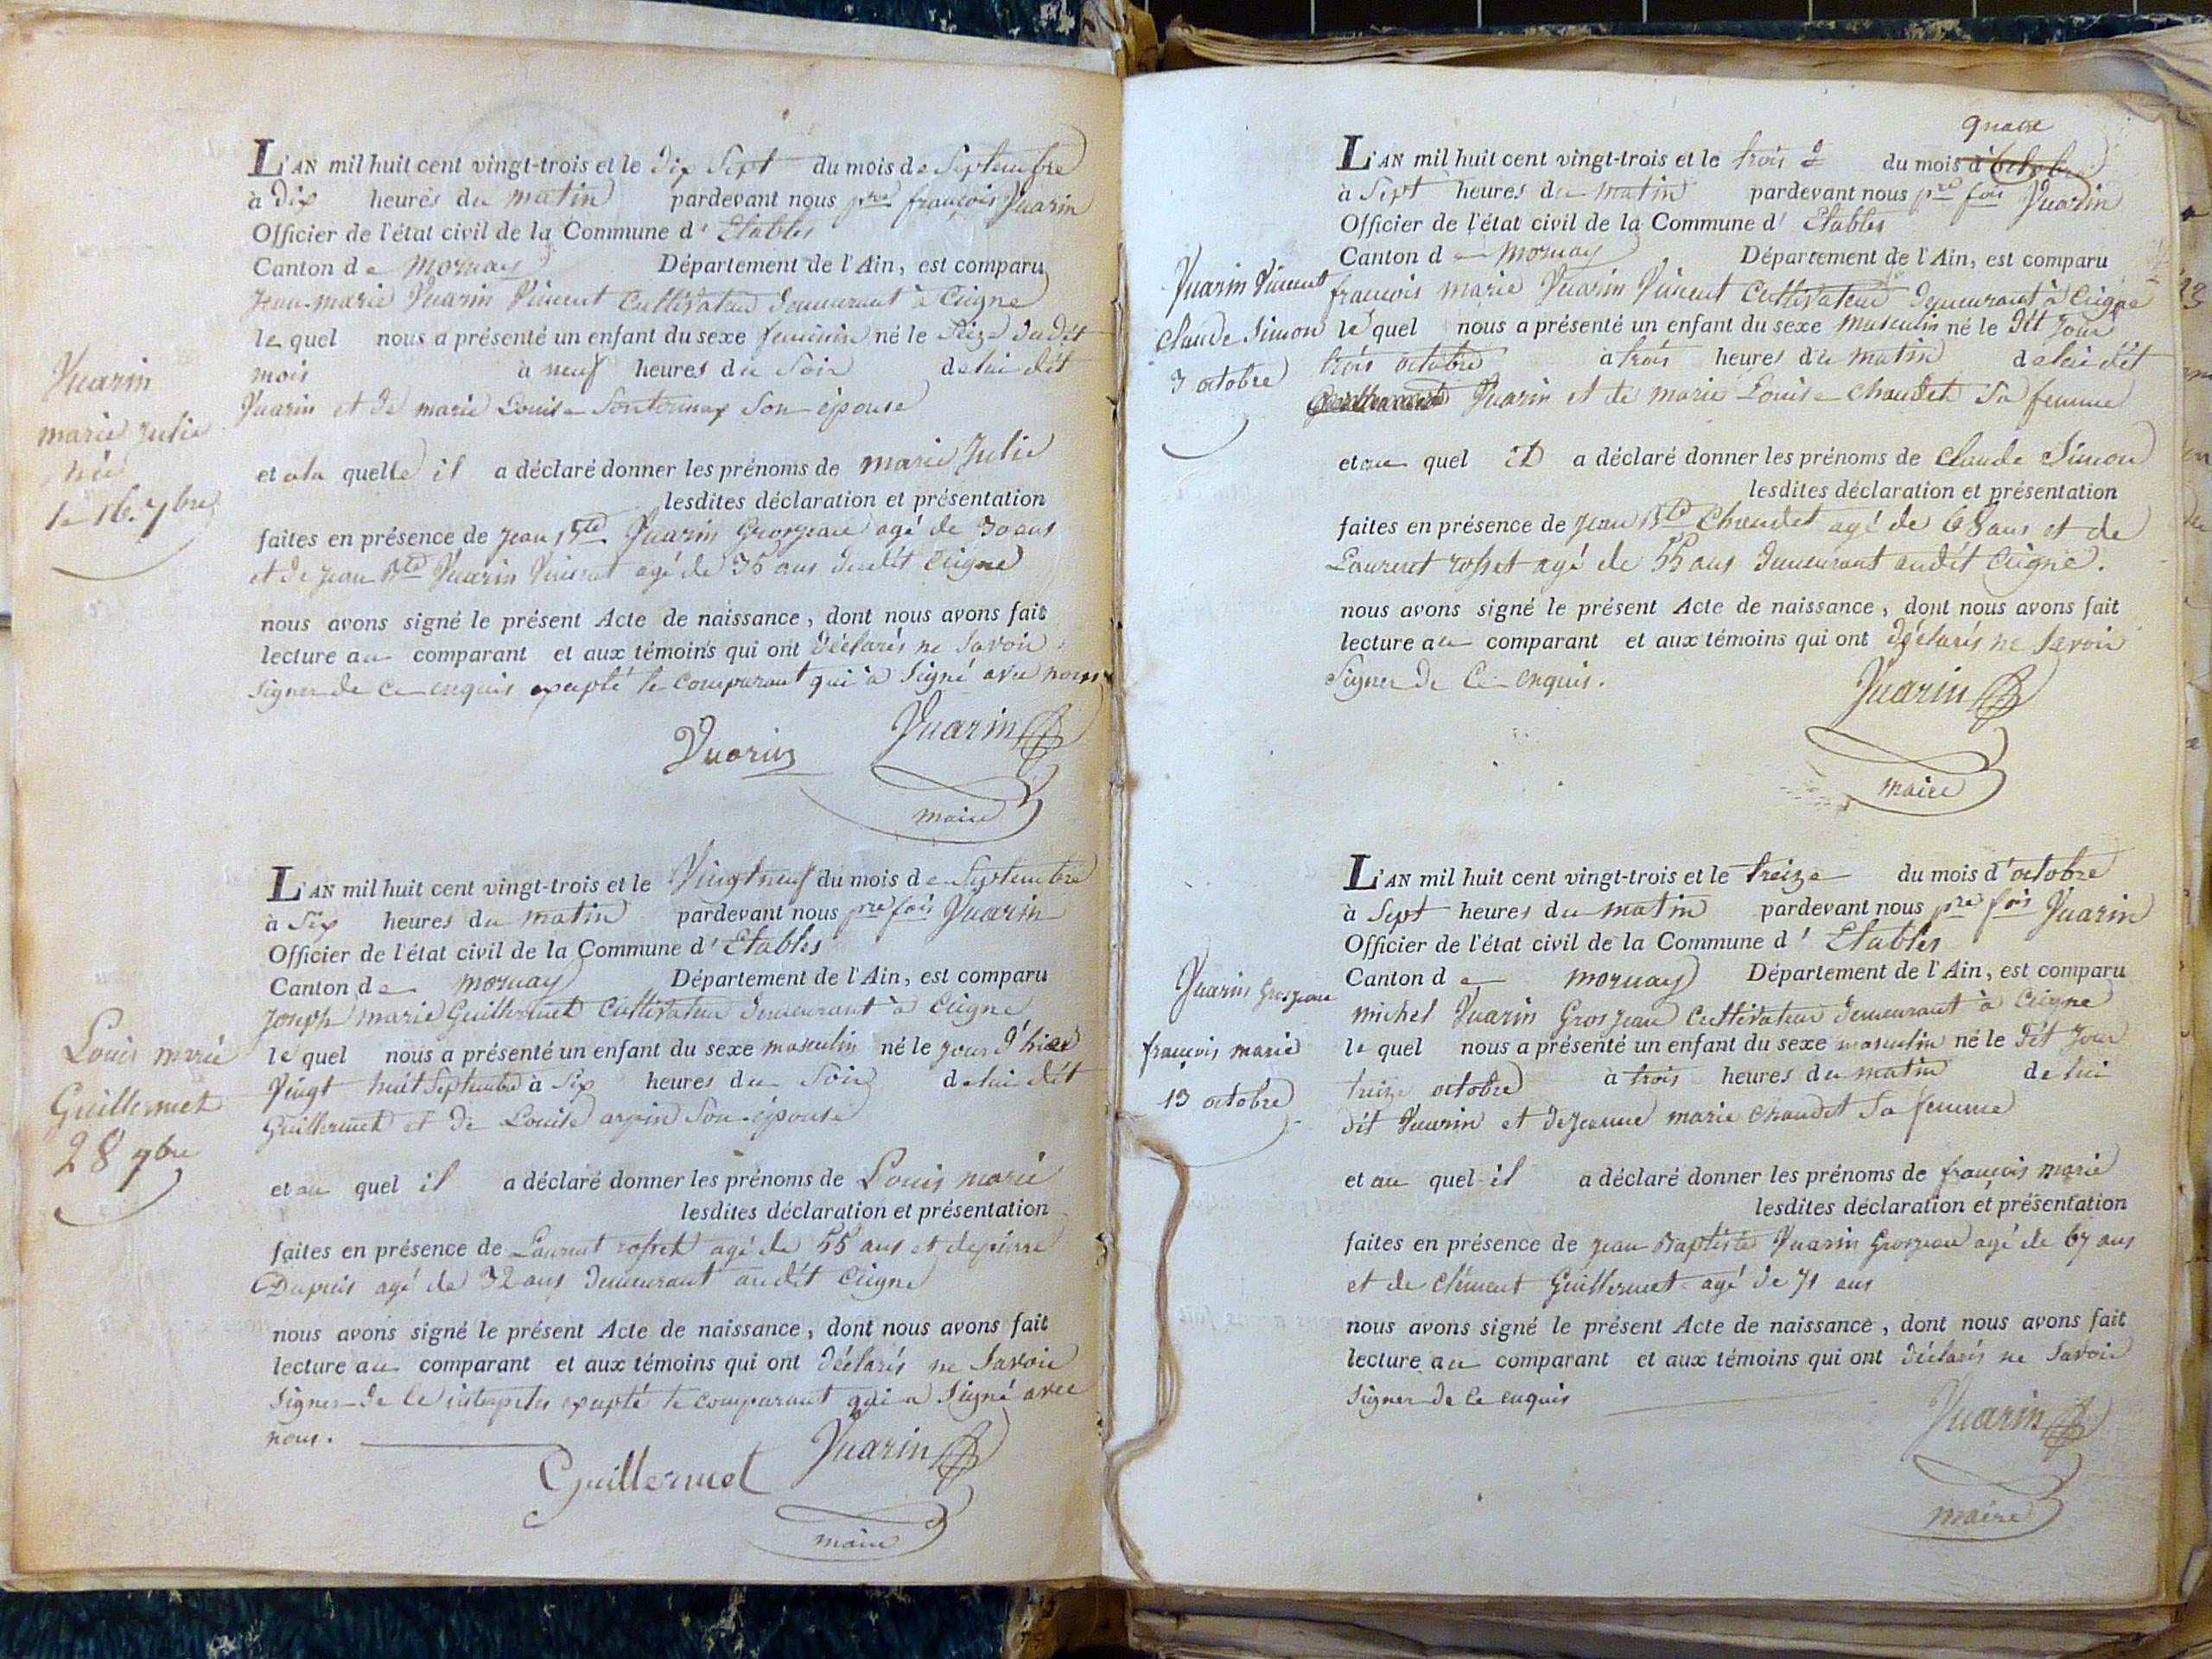 L'AN mil huit cent vingt-trois et le dix Sept du mois de Septembre
à dix heures du matin pardevant nous pre françois Vuarin
Officier de l'état civil de la Commune d' Etables
Canton de Mornay Département de l'Ain, est comparu
Jean-marie Vuarin Vincent Cultivateur demeurant à Ceigne
le quel nous a présenté un enfant du sexe feminin né le Seize dudit
mois à neuf heures du Soir de lui dit
Vuarin et de marie Louise Sonthonnax Son épouse
et a la quelle il a déclaré donner les prénoms de marie Julie
lesdites déclaration et présentation
faites en présence de Jean Bte Vuarin Grosjean agé de 30 ans
et de Jean Bte Vuarin Vincent agé de 36 ans dudit Ceigne
nous avons signé le présent Acte de naissance, dont nous avons fait
lecture au comparant et aux témoins qui ont déclarés ne Savoir
Signer de ce enquis excepté le comparant qui à Signé avec nous
Vuarin Vuarin
maire
Vuarin
marie Julie
née
le 16. 7bre
L'AN mil huit cent vingt-trois et le Vingt neuf du mois de Septembre
à Six heures du matin pardevant nous pre fois Vuarin
Officier de l'état civil de la Commune d' Etables
Canton de mornay Département de l'Ain, est comparu
Joseph marie Guillermet Cultivateur demeurant à Ceigne
le quel nous a présenté un enfant du sexe masculin né le jour d'hier
Vingt huit Septembre à Six heures du Soir de lui dit
Guillermet et de Louise arpin Son épouse
et au quel il a déclaré donner les prénoms de Louis marie
lesdites déclaration et présentation
faites en présence de Laurent rosset agé de 55 ans et de pierre
Dupuis agé de 32 ans demeurant audit Ceigne
nous avons signé le présent Acte de naissance, dont nous avons fait
lecture au comparant et aux témoins qui ont déclarés ne Savoir
Signer de ce excepté le comparant qui a Signé avec
nous.
Guillermet Vuarin
maire
Louis marie
Guillermet
28 7bre
quatre
L'AN mil huit cent vingt-trois et le trois du mois d'Octobre
à Sept heures du matin pardevant nous pre fois Vuarin
Officier de l'état civil de la Commune d' Etables
Canton de mornay Département de l'Ain, est comparu
francois marie Vuarin Vincent Cultivateur demeurant à Ceigne
le quel nous a présenté un enfant du sexe masculin né le dit Jour
trois octobre à trois heures du matin de lui dit
Vuarin et de marie Louise Chaudet Sa femme
et au quel il a déclaré donner les prénoms de Claude Simon
lesdites déclaration et présentation
faites en présence de Jean Bte Chaudet agé de 68 ans et de
Laurent rosset agé de 55 ans demeurant audit Ceigne.
nous avons signé le présent Acte de naissance, dont nous avons fait
lecture au comparant et aux témoins qui ont déclarés ne Savoir
Signer de Ce enquis.
Vuarin
maire
Vuarin Vincent
Claude Simon
3 octobre
L'AN mil huit cent vingt-trois et le treize du mois d'octobre
à Sept heures du matin pardevant nous pre fois Vuarin
Officier de l'état civil de la Commune d' Etables
Canton de mornay Département de l'Ain, est comparu
michel Vuarin Grosjean Cultivateur demeurant à Ceigne
le quel nous a présenté un enfant du sexe masculin né le dit Jour
treize octobre à trois heures du matin de lui
dit Vuarin et de Jeanne marie Chaudet Sa femme
et au quel il a déclaré donner les prénoms de françois marie
lesdites déclaration et présentation
faites en présence de Jean Baptiste Vuarin Grosjean agé de 67 ans
et de Clément Guillermet agé de 71 ans
nous avons signé le présent Acte de naissance, dont nous avons fait
lecture au comparant et aux témoins qui ont déclarés ne Savoir
Signer de Ce enquis
Vuarin
maire
Vuarin Grosjean
françois marie
13 octobre